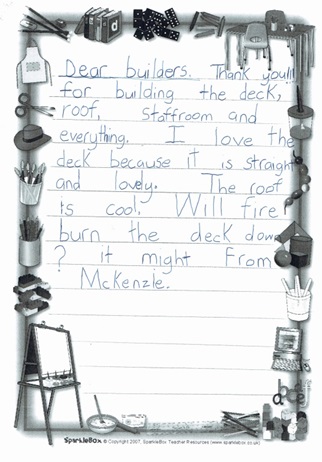 Dear builders. Thank you!!
for building the deck,
roof, Staffroom and
everything. I love the
deck because it is straight
and lovely. The roof
is cool. Will fire
burn the deck down
? it might From
McKenzie.
SparkleBox © Copyright 2007, SparkleBox Teacher Resources (www.sparklebox.co.uk)